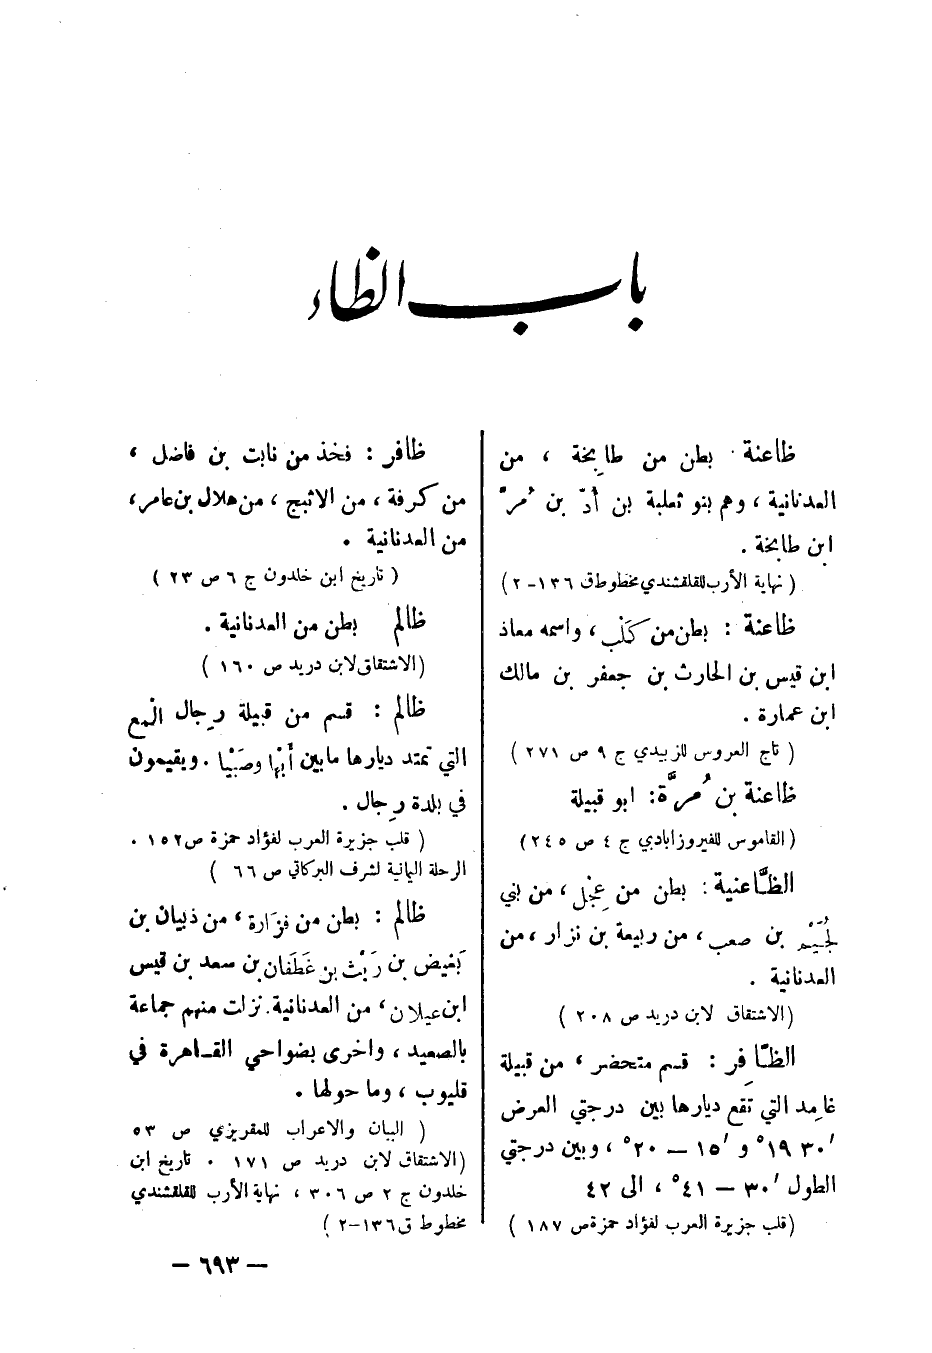 باب الظاء
ظاعنة بطن من طابِخة ، من
العدنانية ، وهم بنو ثعلبة بن أُدّ بن مُرّ
ابن طابخة .
( نهاية الأرب للقلقشندي مخطوط ق ١٣٦-٢ )
ظاعنة : بطن من كَلْب ، واسمه معاذ
ابن قيس بن الحارث بن جعفر بن مالك
ابن عمارة .
( تاج العروس للزبيدي ج ٩ ص ٢٧١ )
ظاعنة بن مُرَّة : ابو قبيلة
( القاموس للفيروزابادي ج ٤ ص ٢٤٥ )
الظَّاعنية : بطن من عِجْل ، من بني
لُجَيْم بن صعب ، من ربيعة بن نزار ، من
العدنانية .
( الاشتقاق لابن دريد ص ٢٠٨ )
الظَّافِر : قسم متحضر ، من قبيلة
غامِد التي تقع ديارها بين درجتي العرض
٣٠′ ١٩° و ١٥′ – ٢٠° ، وبين درجتي
الطول ٣٠′ – ٤١° ، الى ٤٢
( قلب جزيرة العرب لفؤاد حمزة ص ١٨٧ )
ظافر : فخذ من نابت بن فاضل ،
من كرفة ، من الاثبج ، من هلال بن عامر ،
من العدنانية .
( تاريخ ابن خلدون ج ٦ ص ٢٣ )
ظالم بطن من العدنانية .
( الاشتقاق لابن دريد ص ١٦٠ )
ظالم : قسم من قبيلة رِجال المع
التي تمتد ديارها ما بين أَبْها وصَبْيا . ويقيمون
في بلدة رِجال .
( قلب جزيرة العرب لفؤاد حمزة ص ١٥٢ .
الرحلة اليمانية لشرف البركاتي ص ٦٦ )
ظالم : بطن من فَزَارة ، من ذبيان بن
بَغيض بن رَيْث بن غَطَفان بن سعد بن قيس
ابن عيلان ، من العدنانية . نزلت منهم جماعة
بالصعيد ، واخرى بضواحي القـاهرة في
قليوب ، وما حولها .
( البيان والاعراب للمقريزي ص ٥٣
( الاشتقاق لابن دريد ص ١٧١ . تاريخ ابن
خلدون ج ٢ ص ٣٠٦ ، نهاية الأرب للقلقشندي
مخطوط ق ١٣٦-٢ )
— ٦٩٣ —